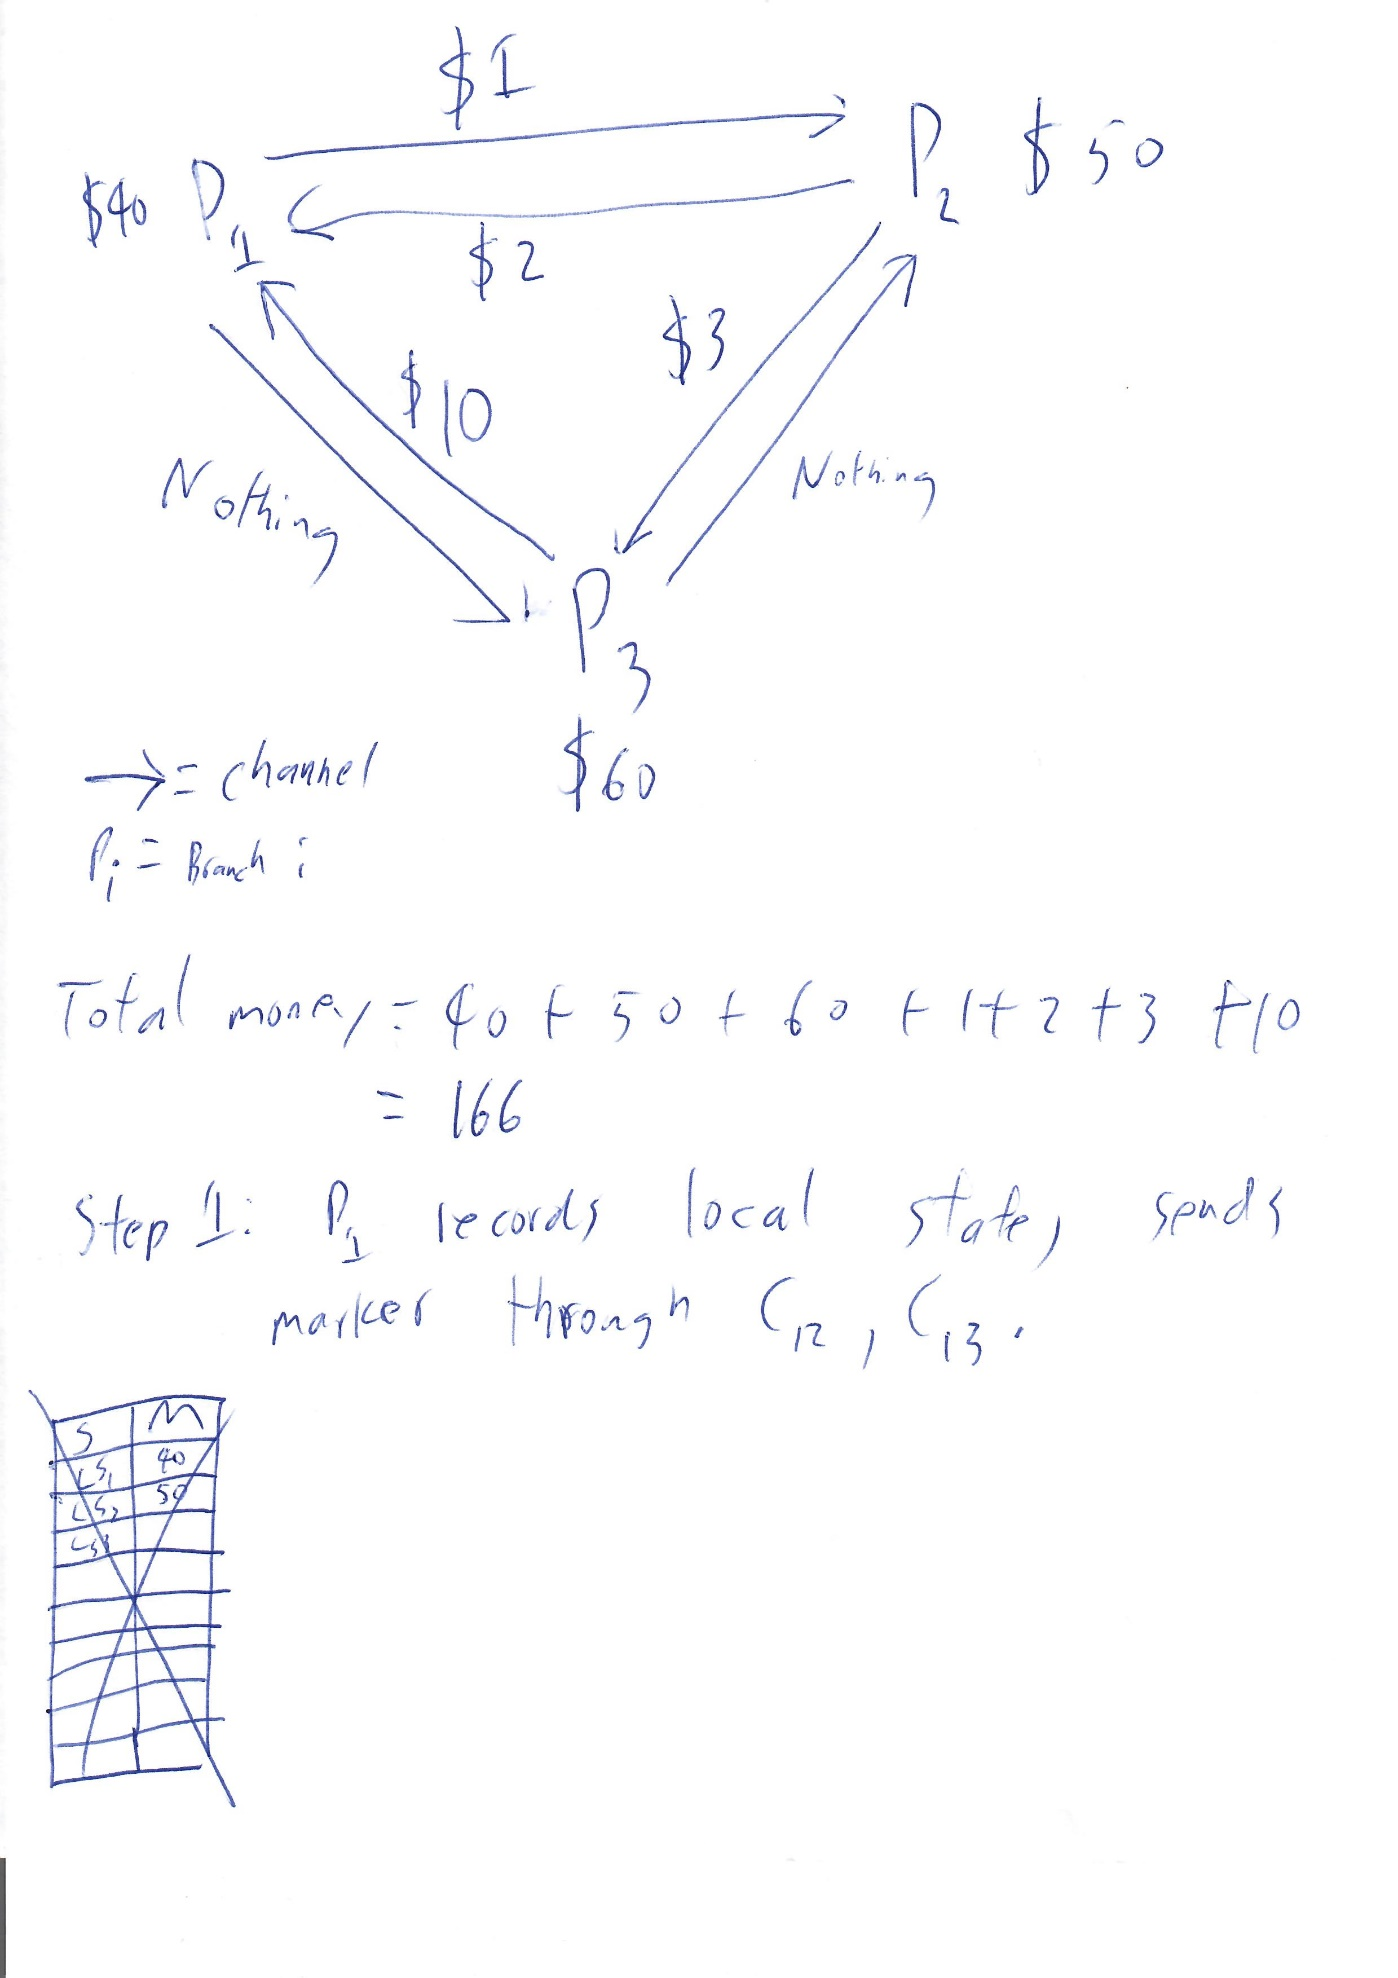 $1
$40 P1
P2 $50
$2
$3
$10
Nothing
Nothing
P3
$60
→ = channel
Pi = Branch i
Total money = 40 + 50 + 60 + 1 + 2 + 3 + 10
= 166
Step 1: P1 records local state, sends
marker through C12, C13.
S M
LS1 40
LS2 50
LS3